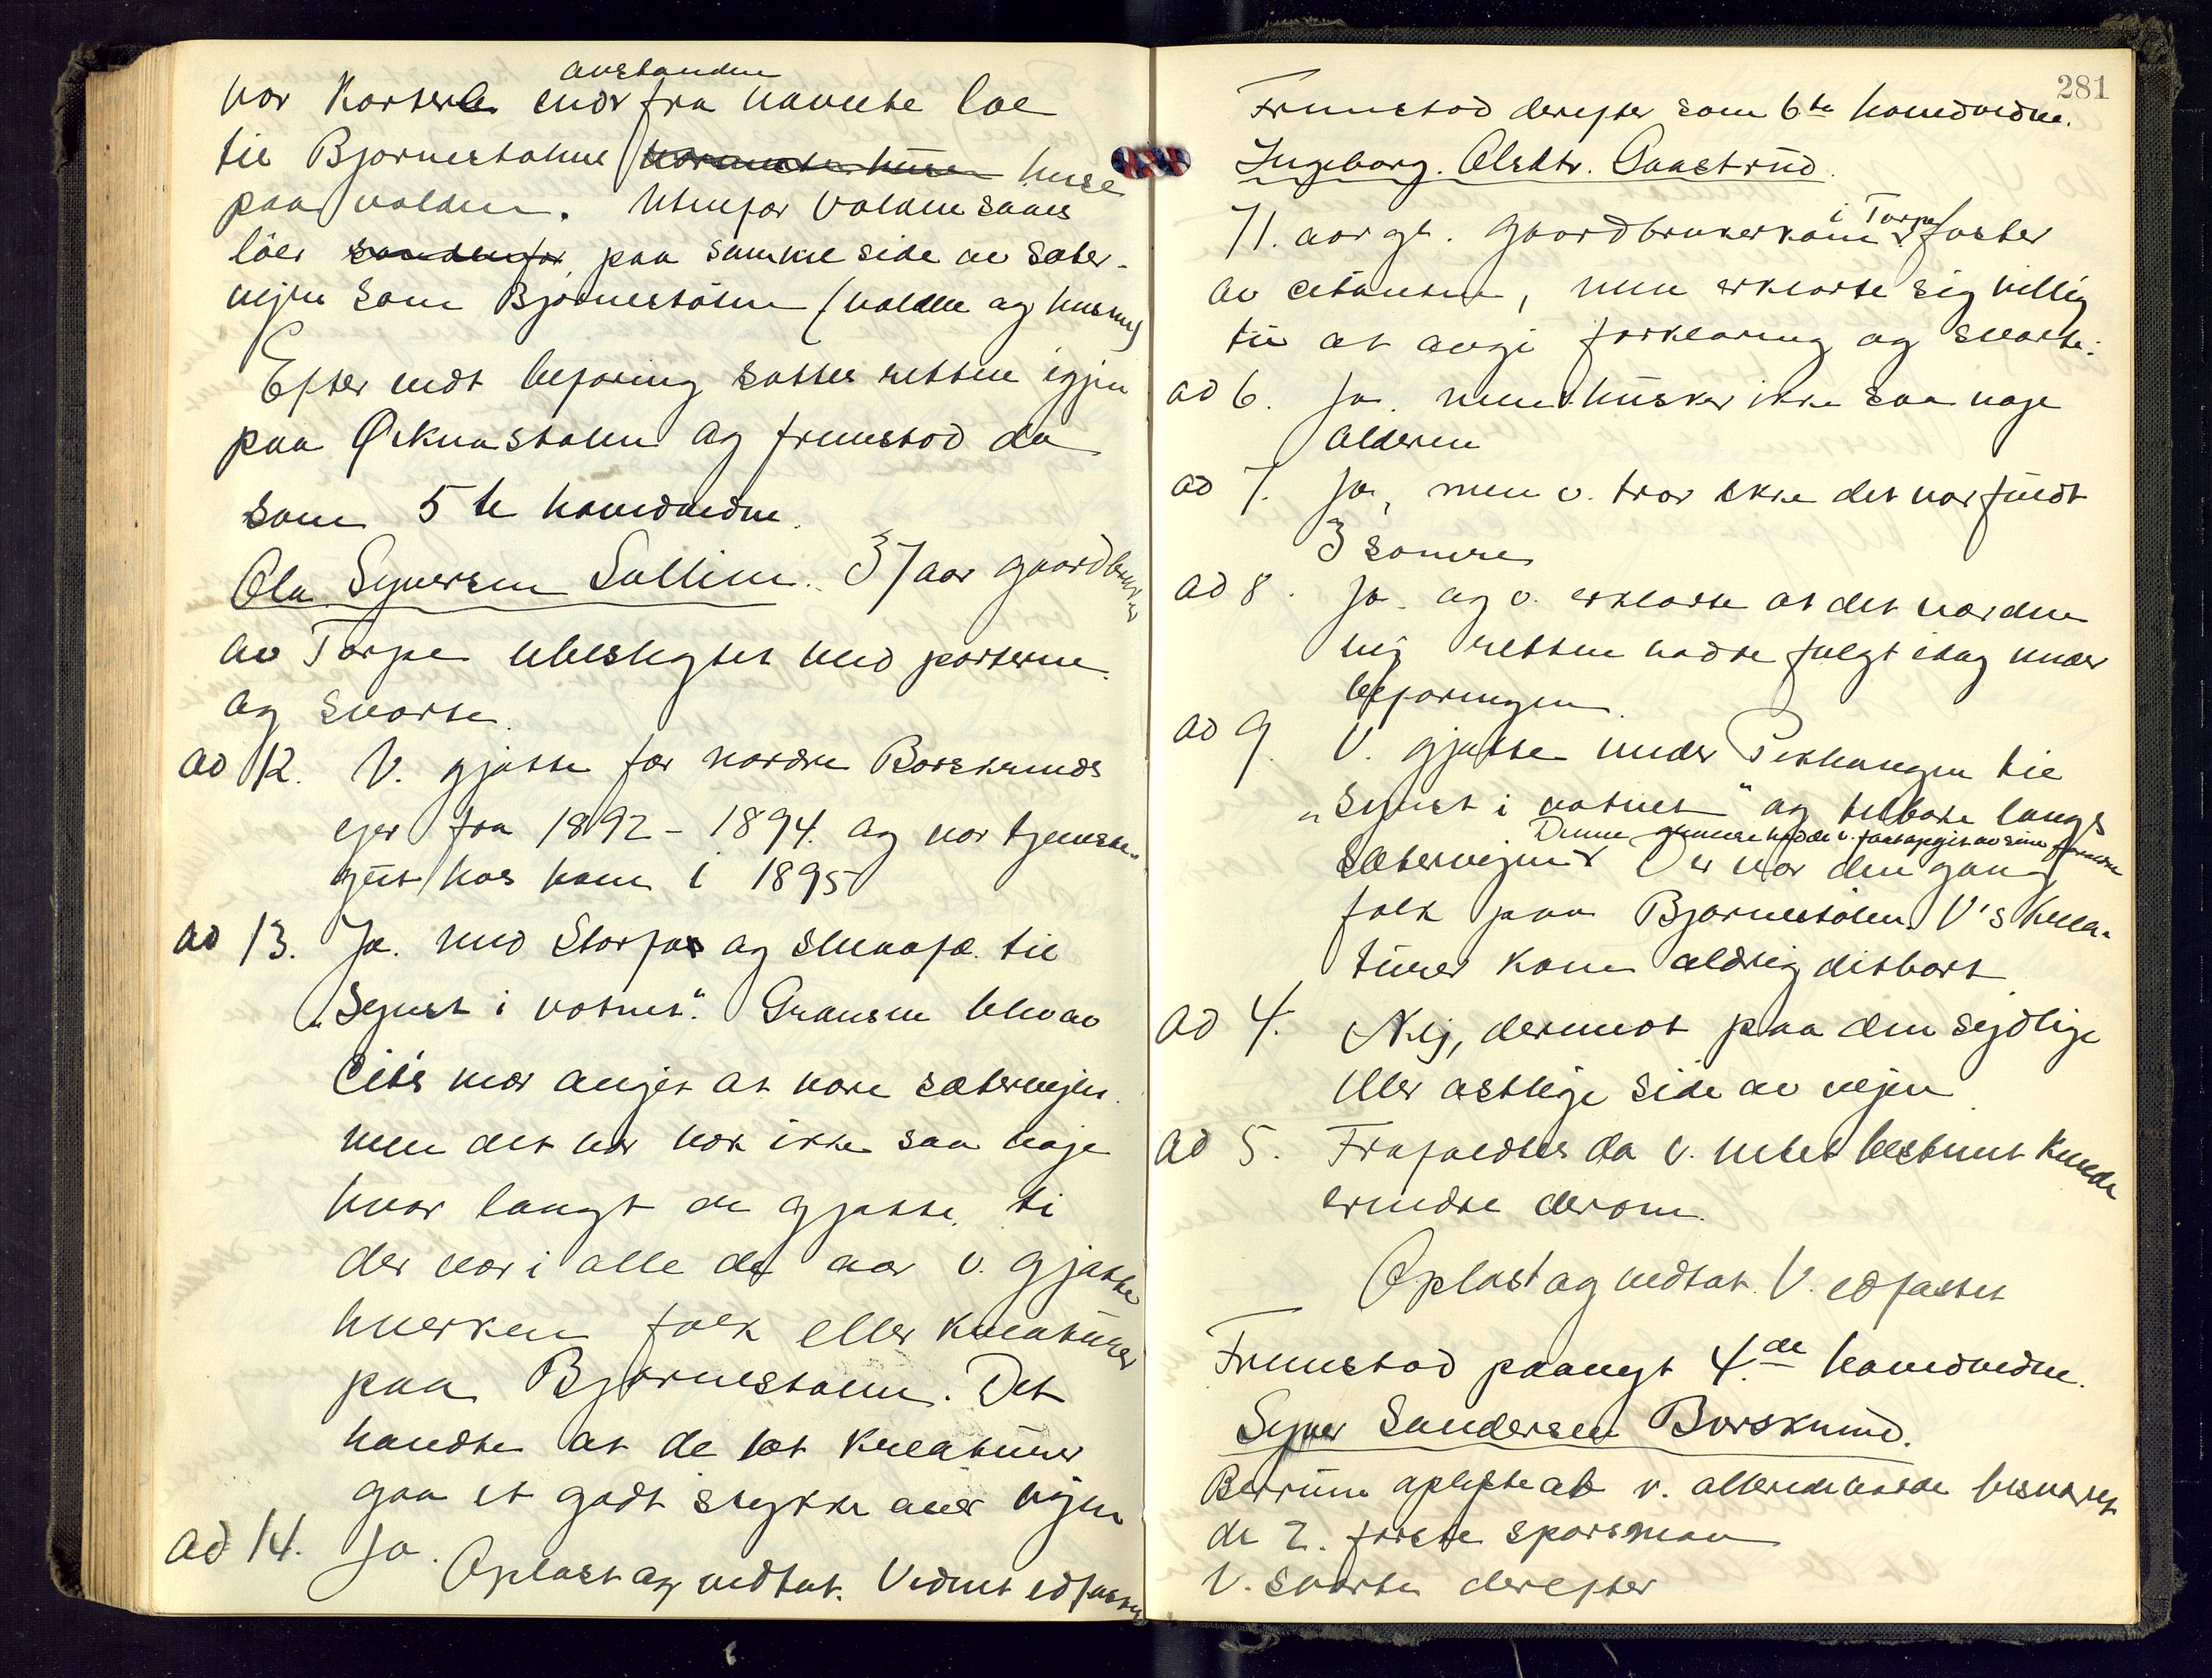 avstanden
var kortere end fra nævnte løe
til Bjørnestølens huse
paa volden. Utenfor volden saaes
løer søndenfor paa samme side av sæter-
vejen som Bjørnestølen (volden og husene)
Efter endt befaring sattes retten igjen
paa Ørknastølen og fremstod da
som 5te hovedvidne.
Ola Syversen Sullien. 37 aar gaardbruker
av Torpe ubeslegtet med parterne
og svarte.
ad 12. V. gjætte for nordre Børskruds
ejer fra 1892 - 1894. og var tjeneste-
gut hos ham i 1895
ad 13. Ja. med Storfæ og smaafæ til
"Synst i votnet". Grænsen blev av
Cit's mor angit at være sætervejen.
men det var nok ikke saa nøje
hvor langt de gjætte, ti
der var i alle de aar v. gjætte
hverken folk eller kreaturer
paa Bjørnestølen. Det
hændte at de lot kreaturer
gaa et godt stykke over vejen
ad 14. Ja.
Oplæst og vedtat. Vidnet edfæstet
281
Fremstod derefter som 6te hovedvidne.
Ingeborg Olsdtr. Gaastrud.
71 aar gl. gaardbrukerkone i Torpe faster
av citanten, men erklærte sig villig
til at avgi forklaring og svarte:
ad 6. Ja. men husker ikke saa nøje
alderen
ad 7. Ja, men v. tror ikke det var fuldt
3 somre
ad 8. Ja. og v. erklærte at det var den
vej retten hadde fulgt idag under
befaringen.
ad 9. V. gjætte under til
"Synst i votnet" og tilbake langs
Denne grænse hadde v. faat opgit av sine forældre
sætervejen. Der var den gang
folk paa Bjørnestølen. V's krea-
turer kom aldrig ditbort
ad 4. Nej, derimot paa den sydlige
eller østlige side av vejen
ad 5. Frafaldtes da v. intet bestemt kunde
erindre derom.
Oplæst og vedtat. V. edfæstet
Fremstod paanyt 4de hovedvidne.
Syver Sandersen Børskrud.
Berrum oplyste at v. allerede hadde besvaret
de 2. første spørsmaal
V. svarte derefter